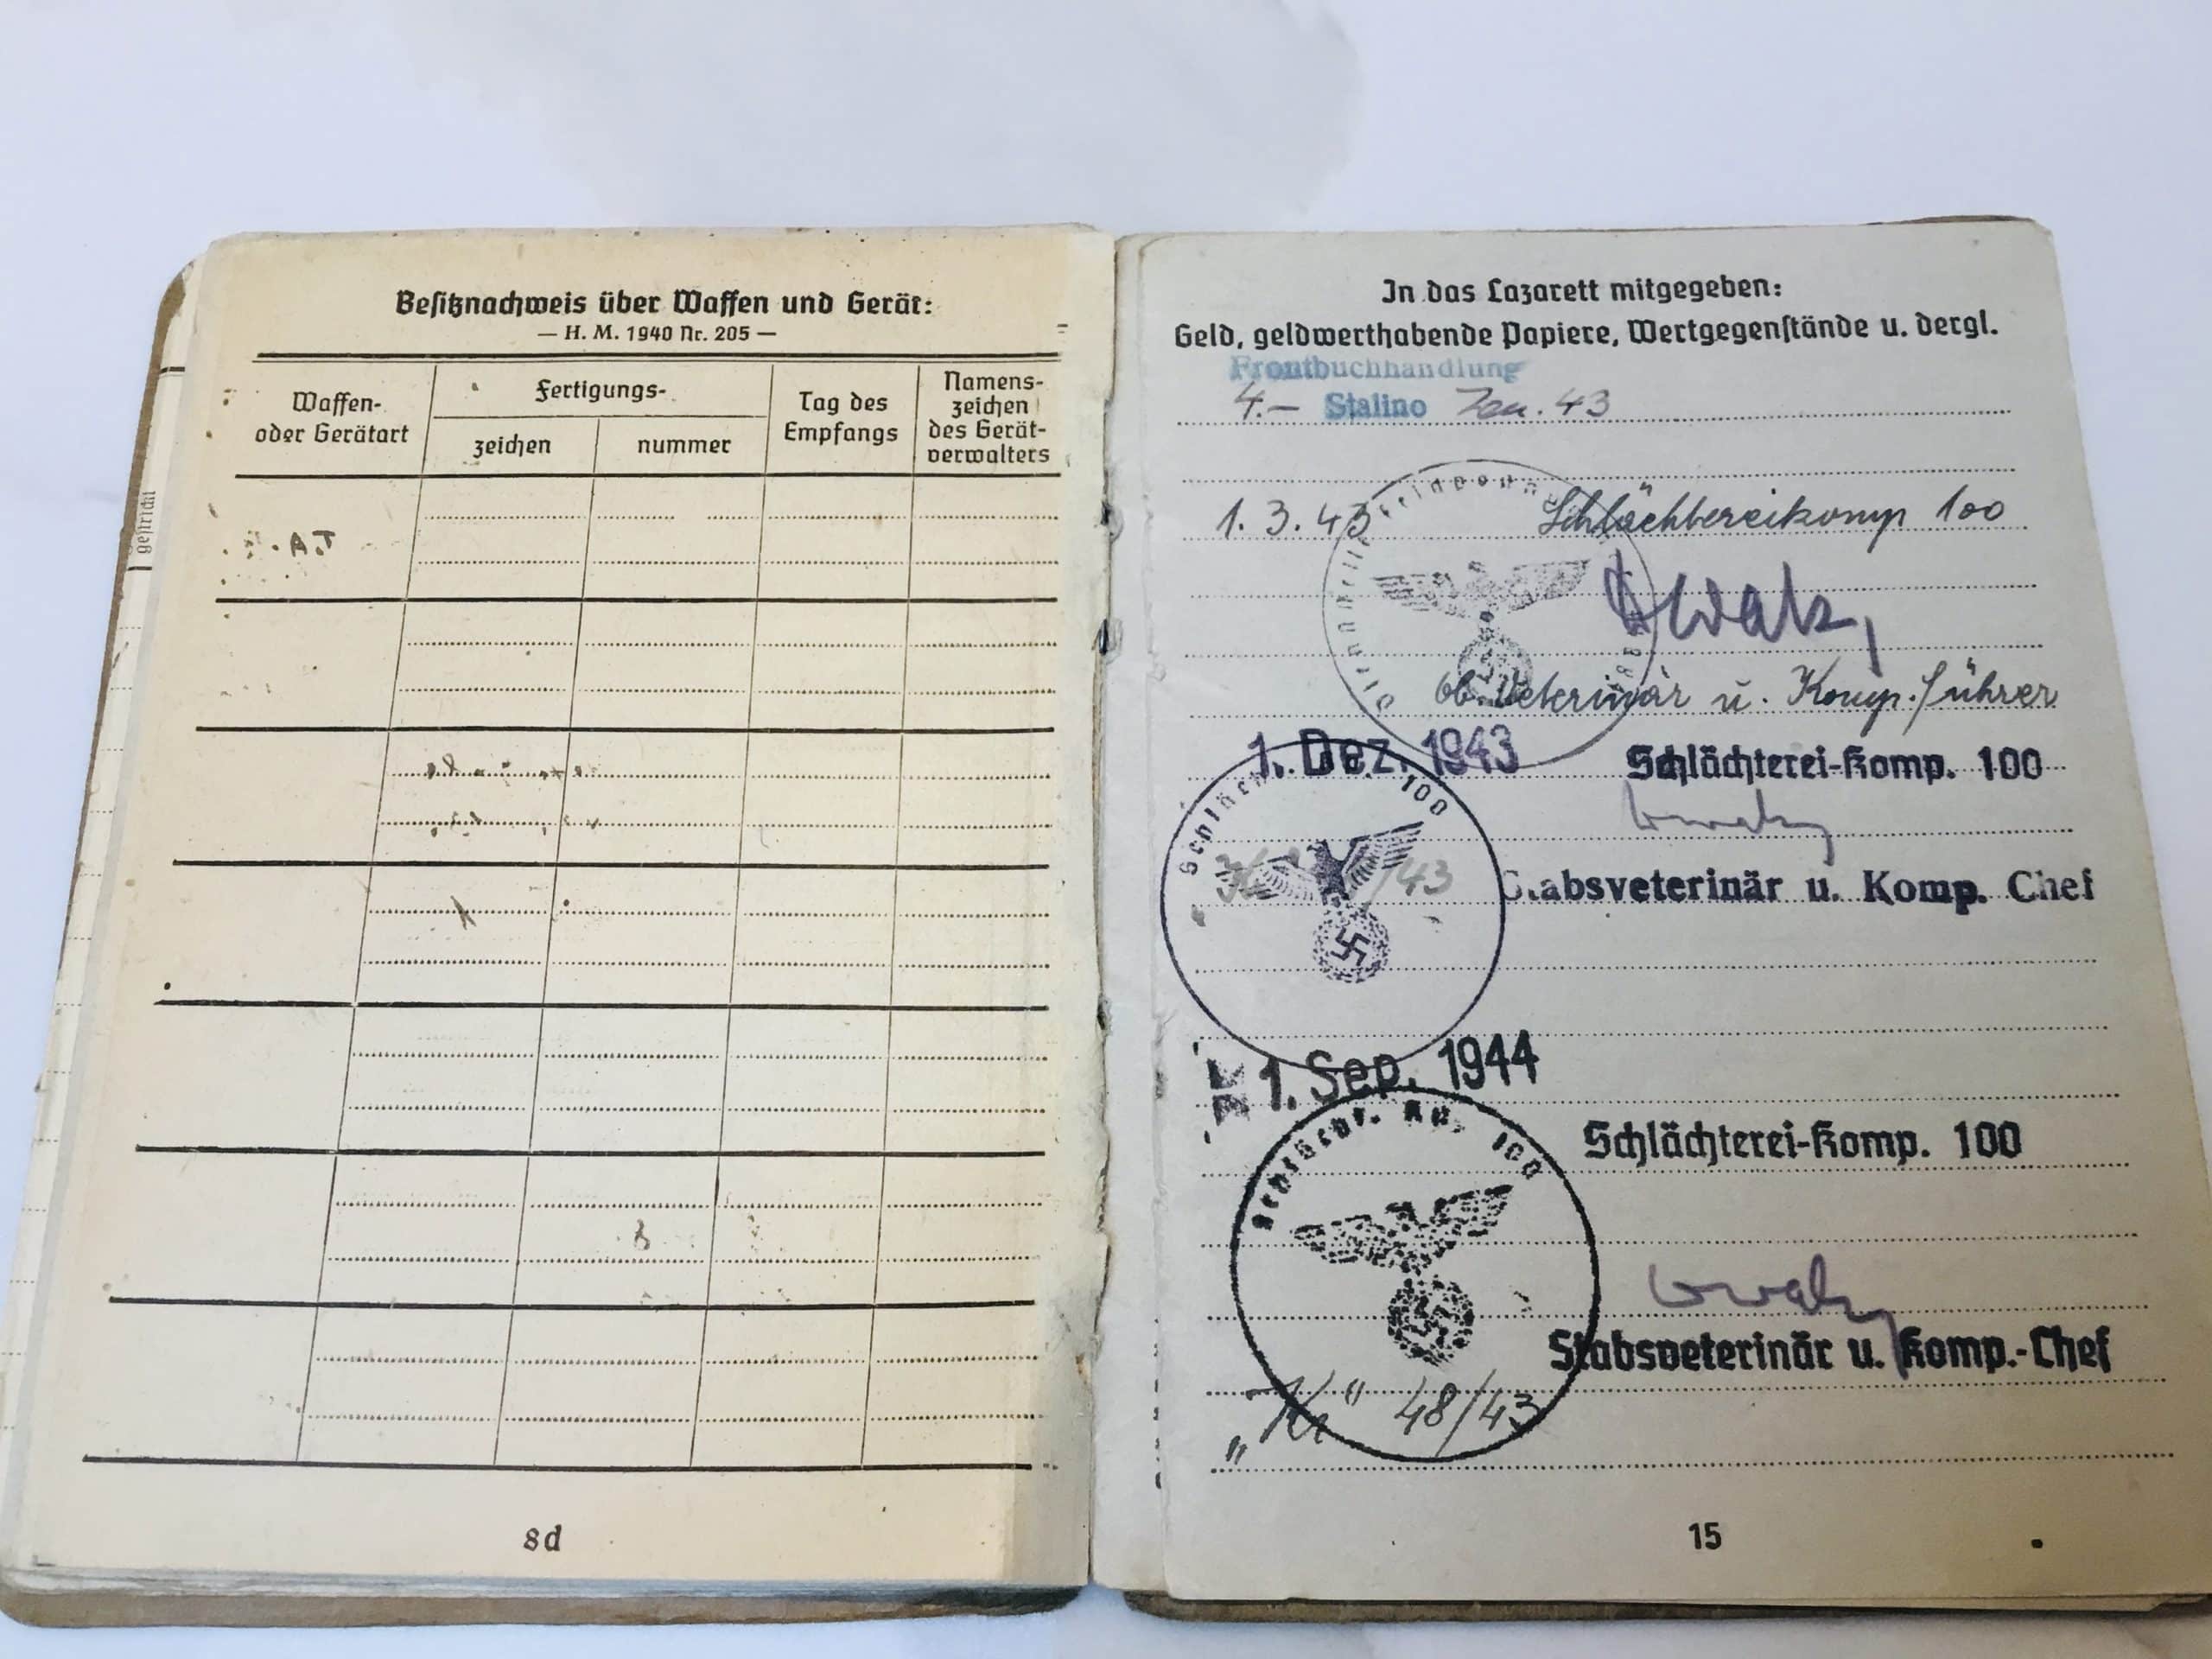 Besitznachweis über Waffen und Gerät:
— H. M. 1940 Nr. 205 —
Waffen-
oder Gerätart
Fertigungs-
zeichen
nummer
Tag des
Empfangs
Namens-
zeichen
des Gerät-
verwalters
8d
gestricht
In das Lazarett mitgegeben:
Geld, geldwerthabende Papiere, Wertgegenstände u. dergl.
Frontbuchhandlung
4.— Stalino 43
1. 3. 43 Schlächtereikomp 100
ob. Veterinär u. Komp. führer
1. Dez. 1943 Schlächterei-Komp. 100
Schläch 100
/43
Stabsveterinär u. Komp. Chef
1. Sep. 1944
Schlächt. Kp. 100
Schlächterei-Komp. 100
Stabsveterinär u. Komp.-Chef
48/43
15